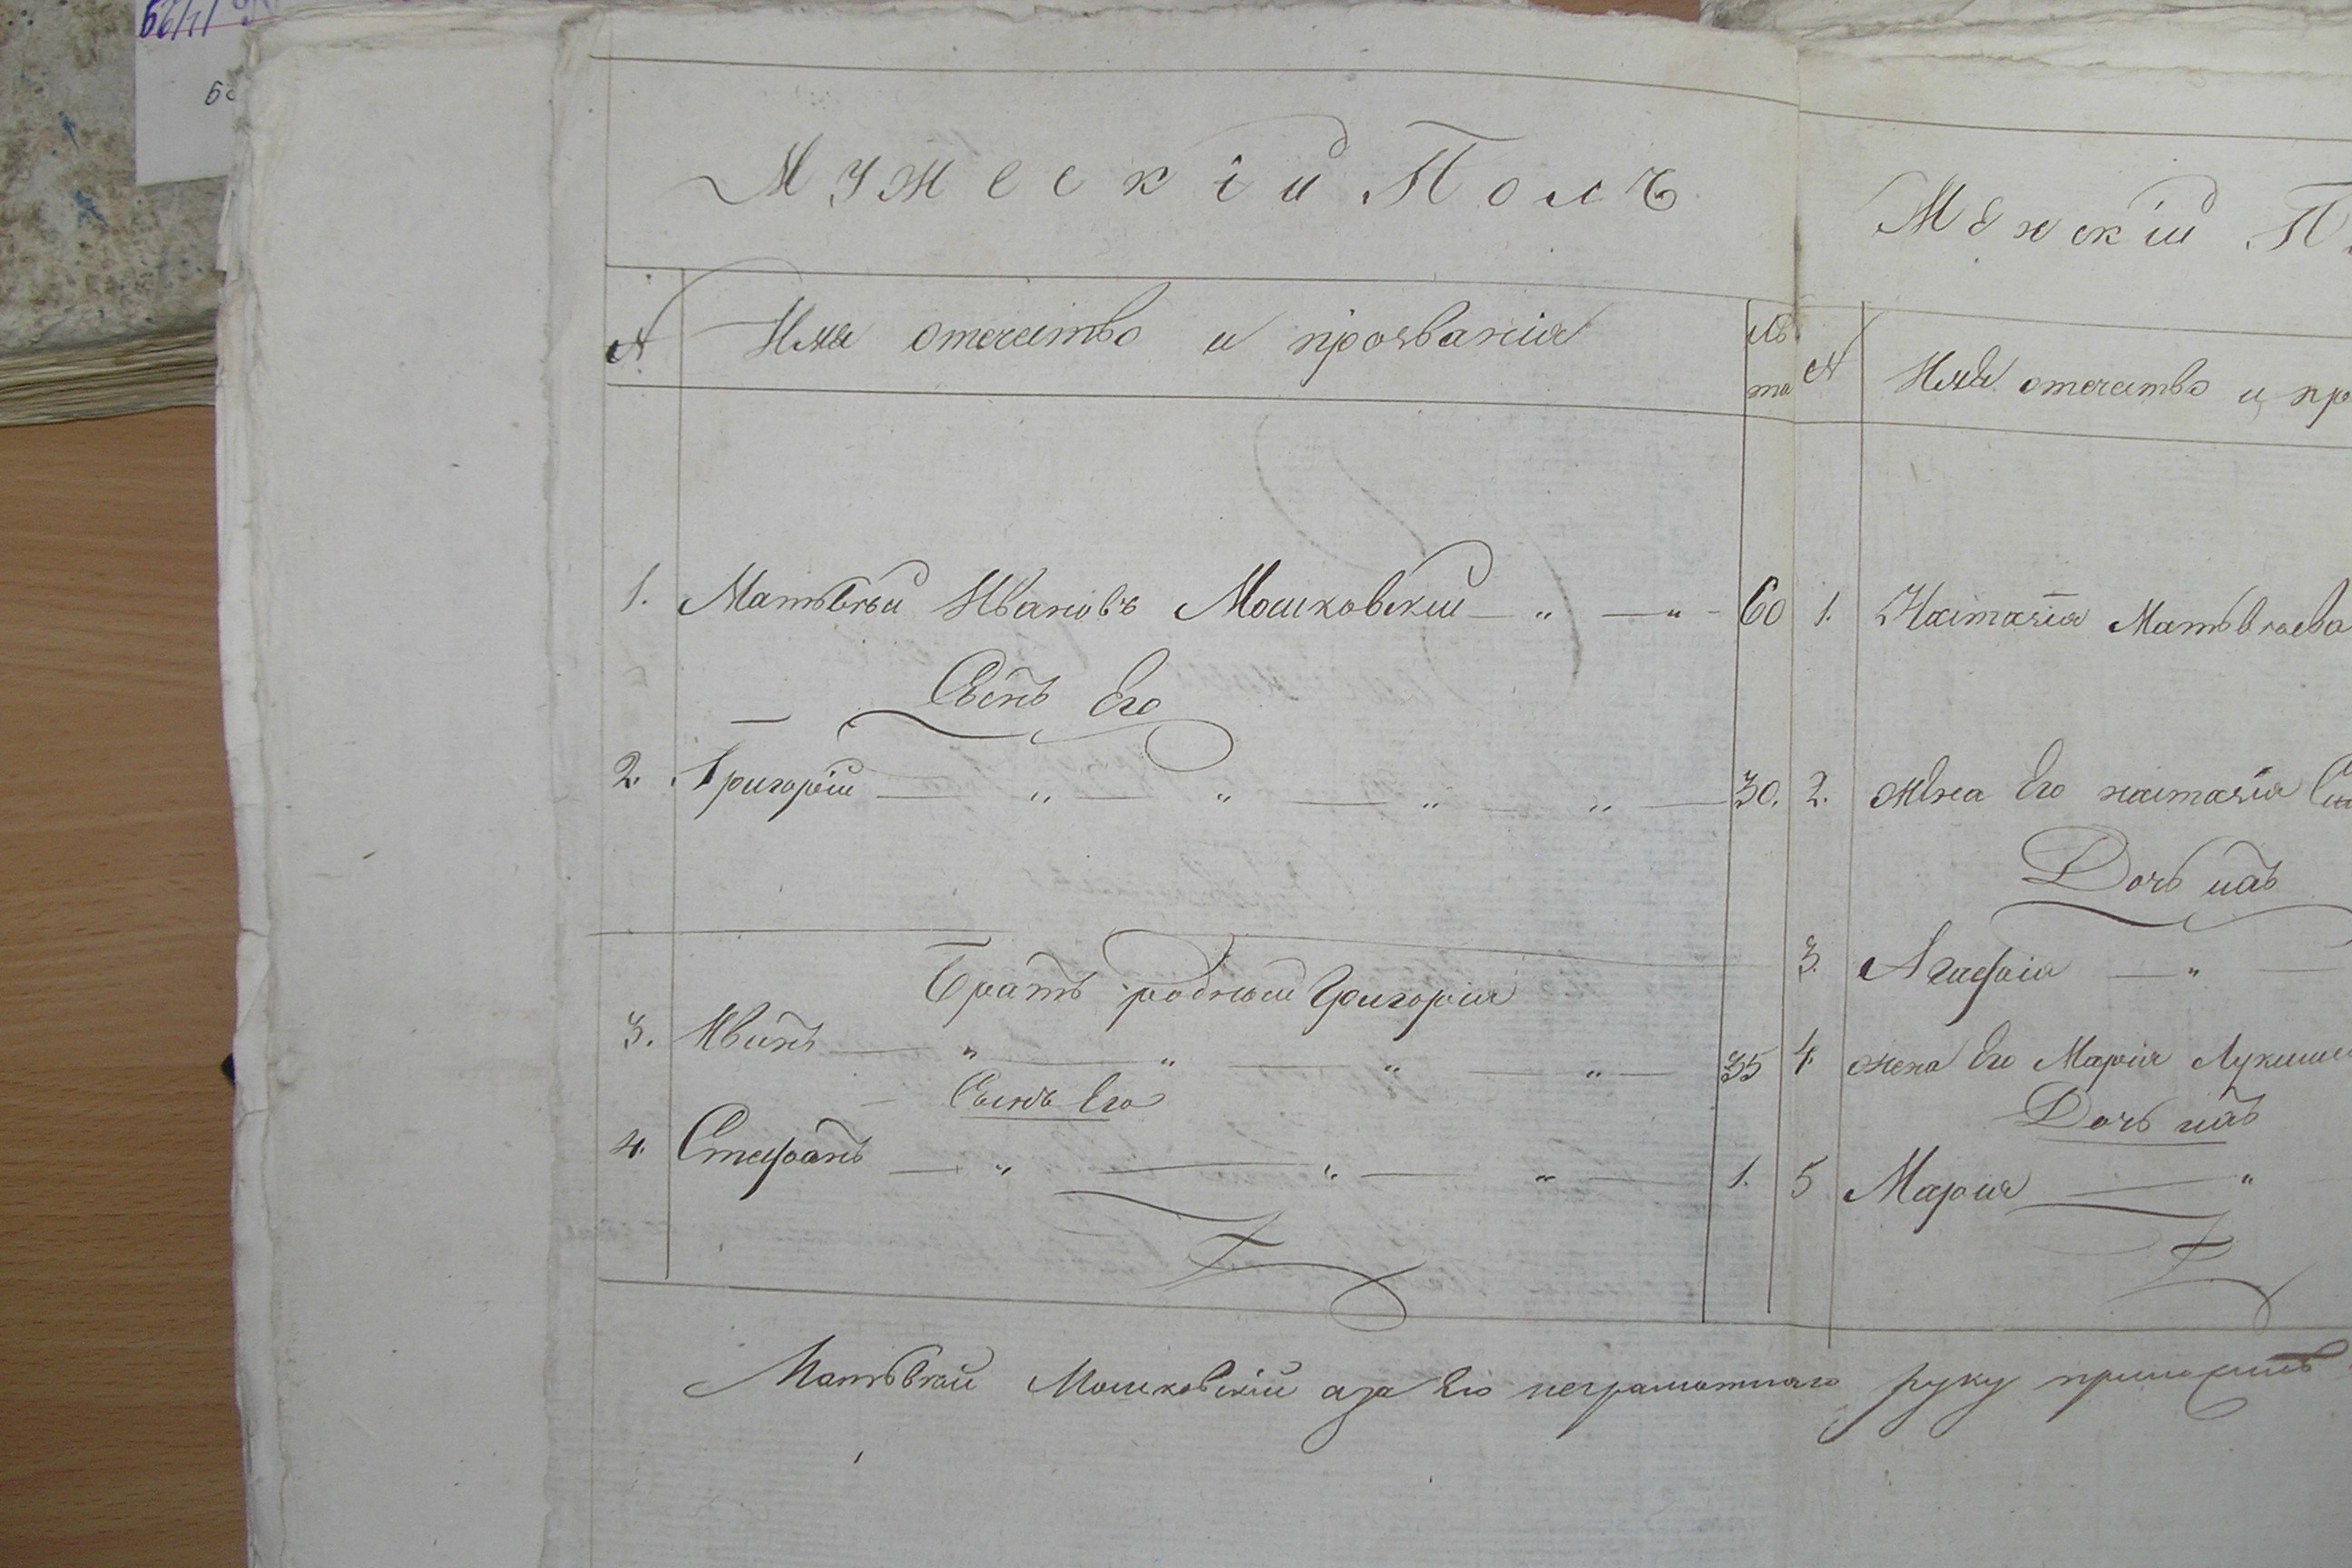 Мужескій Полъ
№ Имя отечество и прозванія лѣта
1. Матьвѣй Ивановъ Мошковскій — „ — „ - 60
Сынъ Его
2. Григорій — „ — „ — „ — „ — 30.
Братъ родный Григорія
3. Ивинъ — „ — „ — „ — „ — 35
Сынъ Его
4. Стефанъ — „ — „ — „ — 1.
Женскій П
№ Имя отечество и про
1. Настазія Матьвѣева
2. жена Его настазія
Дочь ихъ
3. Агафія — „ —
4. жена Его Марія
Дочь ихъ
5 Марія — „
Матьвѣй Мошковскій а за Его неграмотнаго руку приложилъ